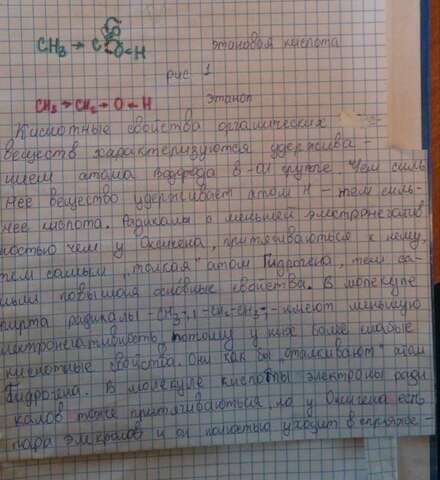 CH₃ → C O O ← H этановая кислота
рис 1
CH₃ → CH₂ → O ← H этанол
Кислотные свойства органических
веществ характеризуются удержива-
нием атома водорода в -OH группе Чем силь
нее вещество удерживает атом H - тем силь-
нее кислота. Радикалы с меньшей электронегатив
ностью чем у Оксигена, притягиваються к нему,
тем самым „толкая" атом Гидрогена, тем са-
мым повышая основные свойства. В молекуле
спирта радикалы -CH₃-, -CH₂- имеют меньшую
электронегативность, потому у них более слабые
кислотные свойства. Они как бы отталкивают" атом
Гидрогена. В молекуле кислоты электроны ради
калов тоже притягиваються, но у Оксигена есть
пара и он полностью уходит в